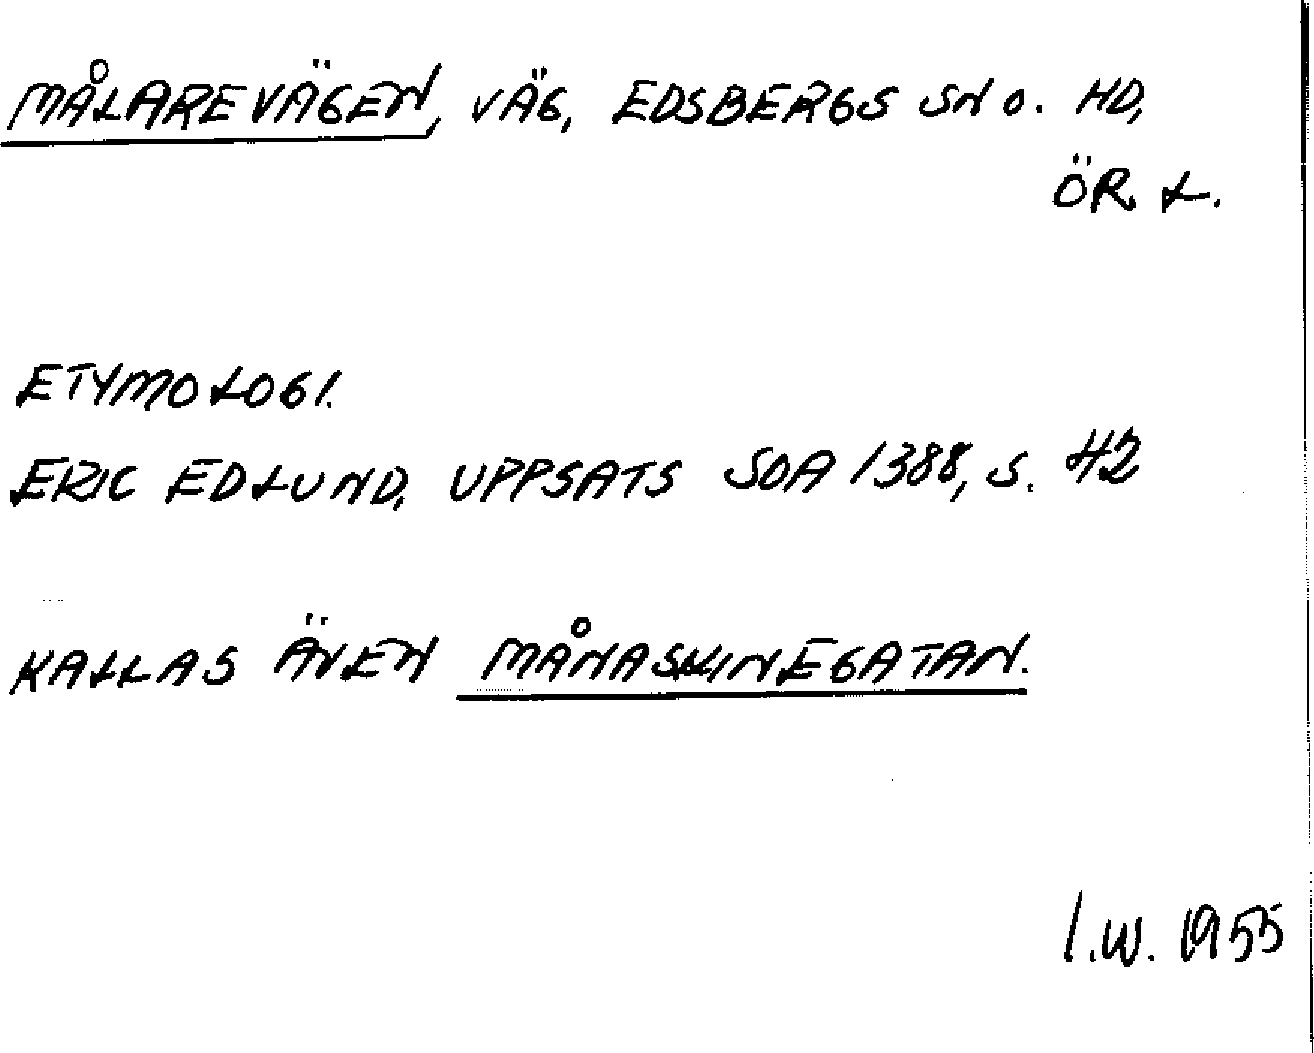 MÅLAREVÄGEN, VÄG, EDSBERGS SN O. HD,
ÖR L.
ETYMOLOGI.
ERIC EDLUND, UPPSATS SOA 1388, S. 42
KALLAS ÄVEN MÅNASKINEGATAN.
I.W. 1955